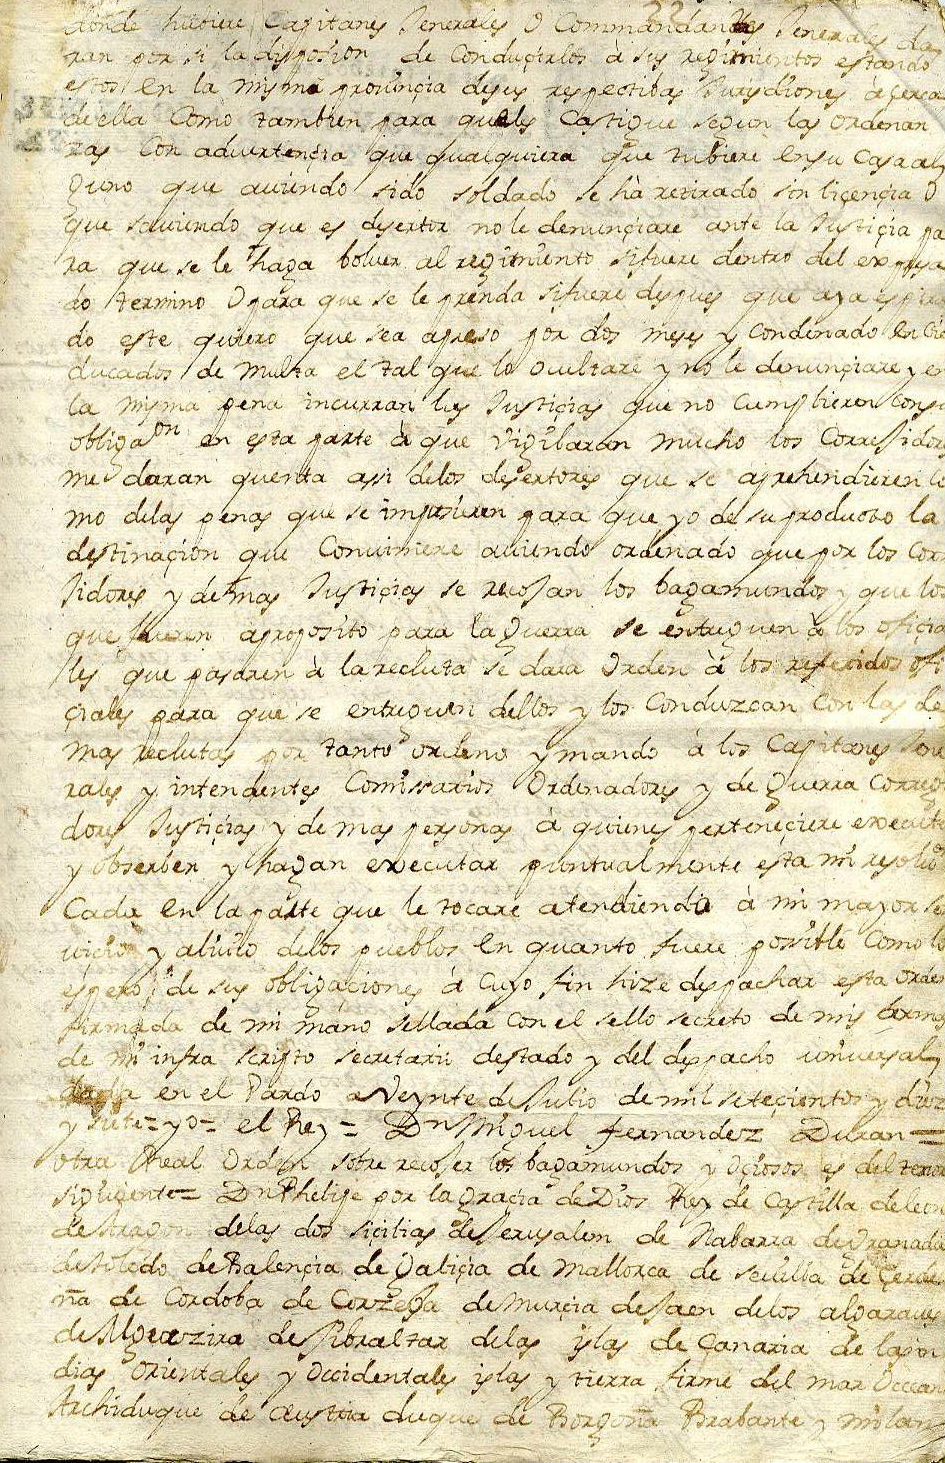 donde hubiere Capitanes Jenerales O Commandantes Jenerales da
ran por si la disposion de Conduçirlos à sus regimientos estando
estos en la misma provinçia desus respectibas Jurysdiones à çerca
de ella Como tambien para queles Castigue segun las ordenan
zas Con advertençia que qualquiera que tubiere ensu Casa al
guno que aviendo sido soldado se hà retirado sin liçençia O
que saviendo que es desertor no le denunçiare ante la Justiçia pa
ra que se le haga bolver al regimiento sifuere dentro del expresa
do termino O para que se le prenda sifuere despues que aya espira
do este quiero que sea apreso por dos meses y Condenado en Cie
ducados de Multa el tal que lo ocultare y no le denunçiare y en
la misma pena incurran las Justiçias que no Cumplieren Consu
obligaon en esta parte à que Vigilaran mucho los Corresidores
me daran quenta asi delos desertores que se aprehendieren Co
mo delas penas que se impusieren para que yo de su producto la
destinaçion que Conviniere aviendo ordenado que por los Corre
sidores y demas Justiçias se recojan los bagamundos y que los
que fueren aproposito para la Guerra se entreguen à los ofiçia
les que pasaren à la recluta se dara Orden à los referidos ofi
çiales para que se entreguen dellos y los Conduzcan Con las de
mas reclutas por tanto ordeno y mando à los Capitanes Jene
rales y intendentes Comissarios Ordenadores y de Guerra Corregi
dores Justiçias y de mas personas à quienes perteneçiere execute
y obserben y hagan executar puntualmente esta mi resoluon
Cada en la parte que le tocare atendiendo à mi mayor se
viçio y alivio delos pueblos en quanto fuere possible Como lo
espero de sus obligaçiones à Cuyo fin hize despachar esta orden
firmada de mi mano sellada con el sello secreto de mis armas
de mi infra scripto secretario destado y del despacho universal
dada en el Pardo a Veynte de Julio de mil seteçientos y diez
y siete = yo = el Rey = Dn Miguel fernandez Duran =
otra Real Orden sobre recojer los bagamundos y Oçiosos es del tenor
siguiente = Dn Phelipe por la Graçia de Dios Rey de Castilla de leon
de Aragon delas dos siçilias de Jerusalem de Nabarra de Granada
de tòledo de Balençia de Galiçia de Mallorca de sevilla de Çerde
ña de Cordoba de Corzega de Murçia de Jaen de los algaraves
de Algezira de Jibraltar de las islas de Canaria de las in
dias Orientales y Occidentales islas y tierra firme del mar Occean
Archiduque de Austria duque de Borgoña Brabante y milan